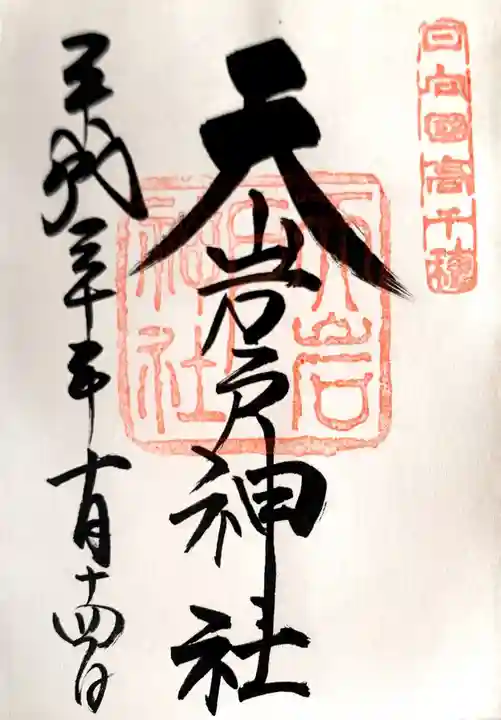 日向國高千穂
天岩戸神社
天岩戸神社
平成三十年十月十四日